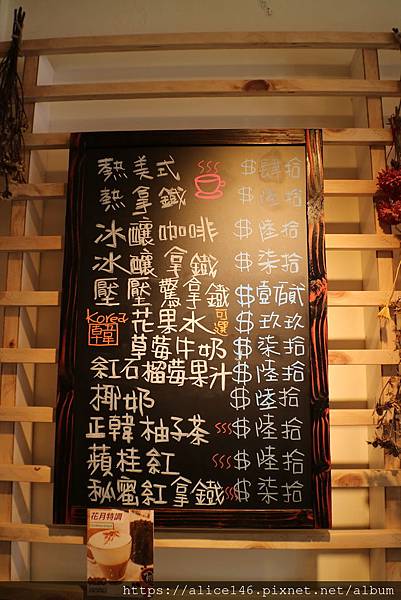 熱美式 $肆拾
熱拿鐵 $陸拾
冰釀咖啡 $陸拾
冰釀拿鐵 $柒拾
壓壓驚拿鐵 $壹佰貳
Korea 韓 花果水 可選 $玖玖
草莓牛奶 $柒拾
紅石榴莓果汁 $陸拾
椰奶 $陸拾
正韓柚子茶 $陸拾
蘋桂紅 $陸拾
秘蜜紅拿鐵 $柒拾
花月特調
https://alice146.pixnet.net/album